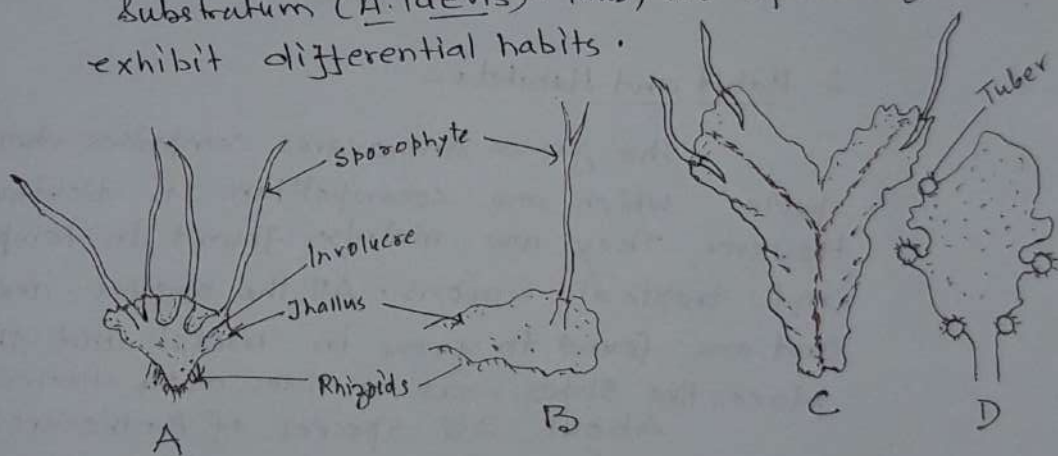 Substratum (A. laevis)
exhibit differential habits.
Tuber
Sporophyte
Involucre
Jhallus
Rhizoids
A
B
C
D